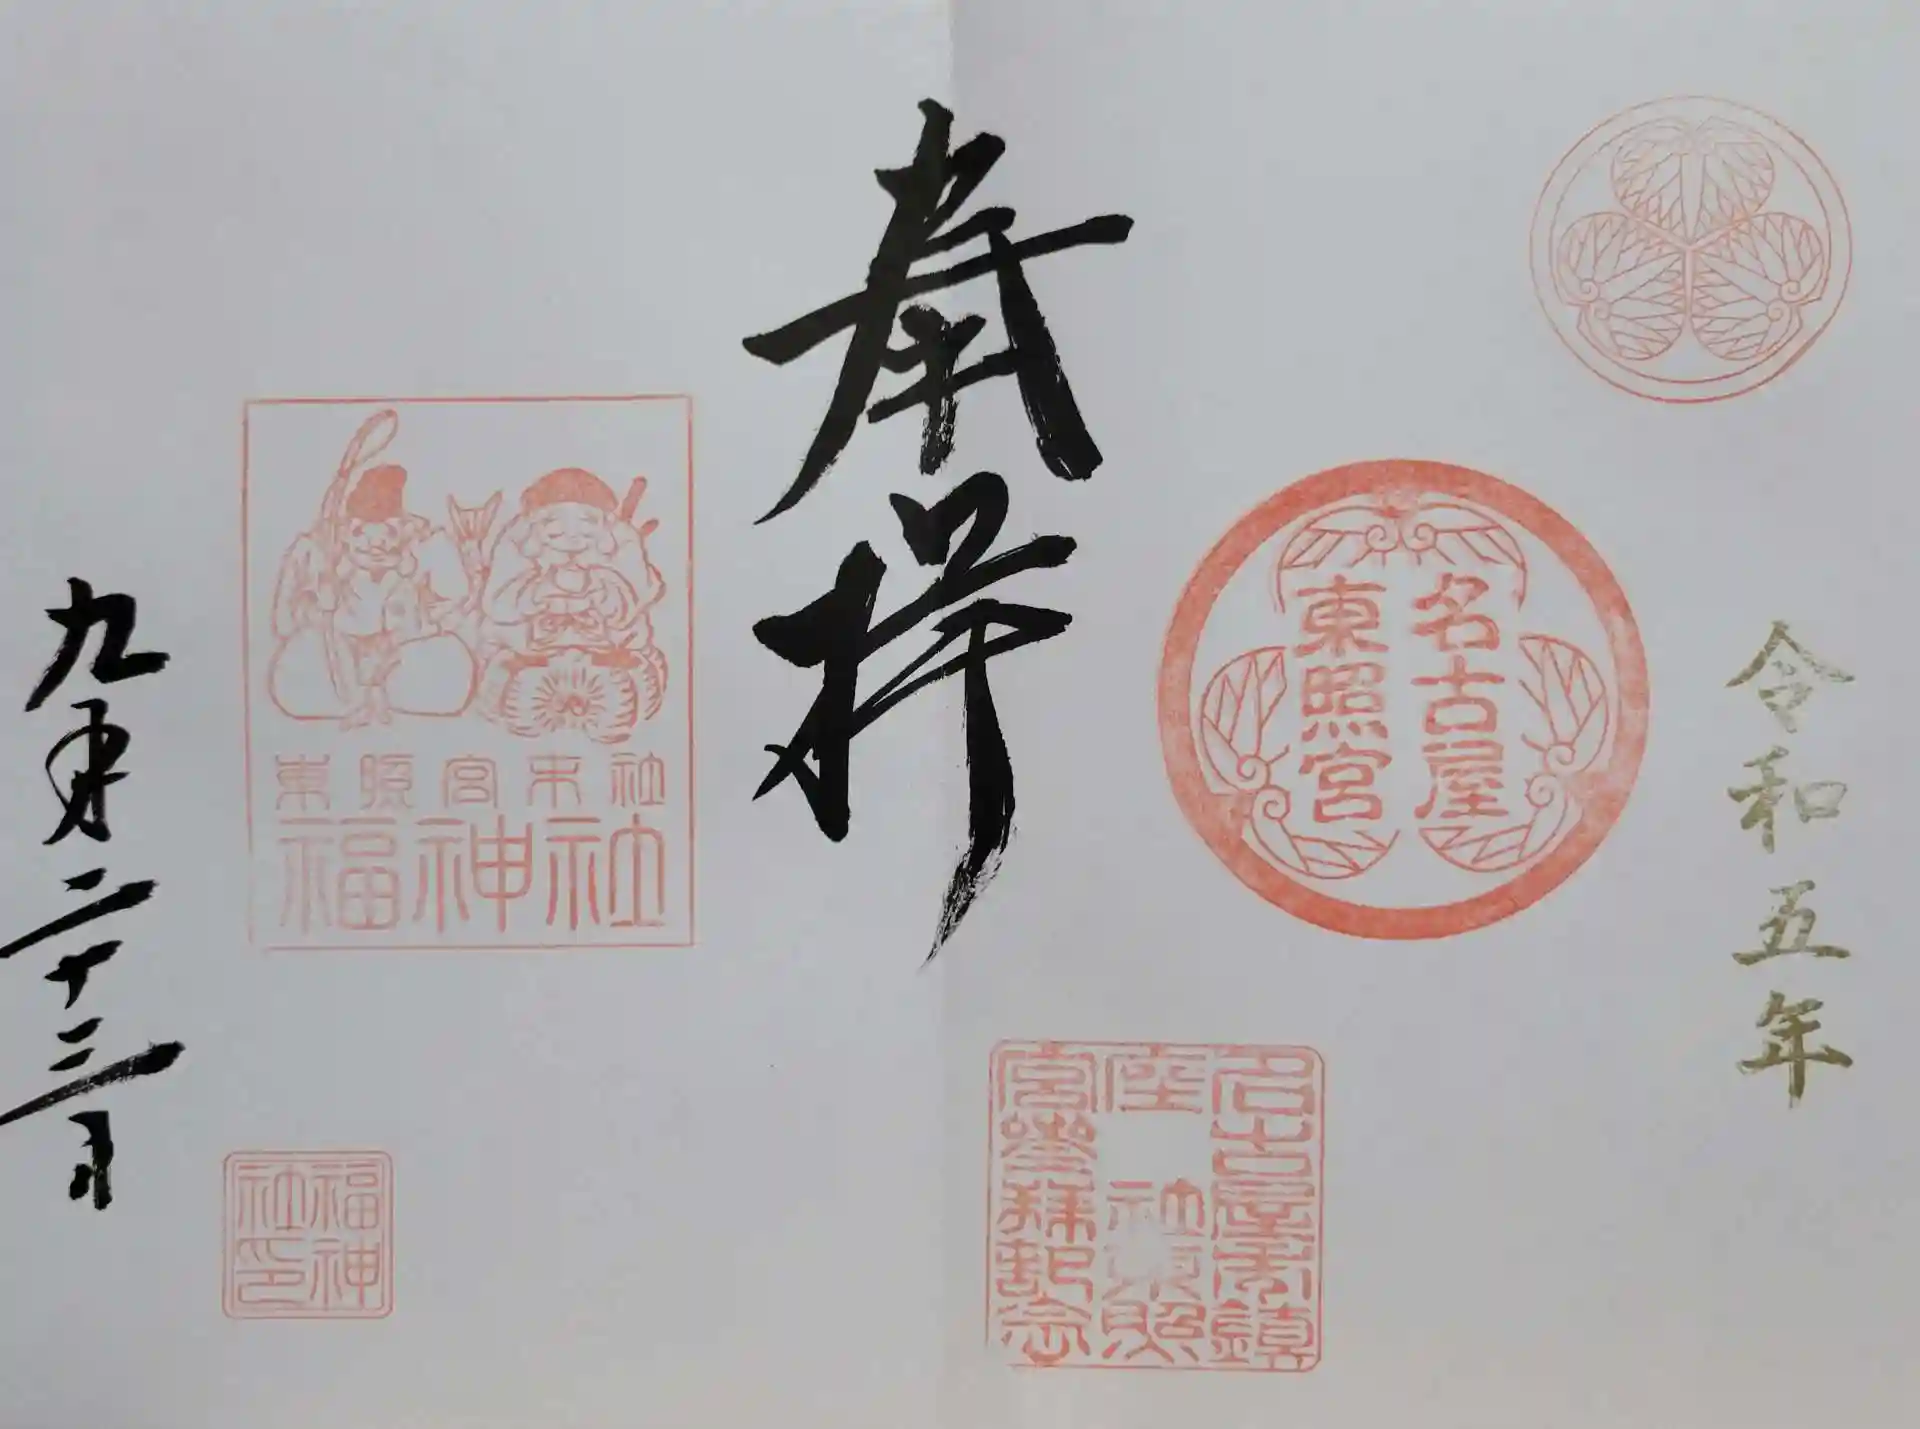 令和五年
名古屋
東照宮
名古屋市鎮
座 社東照
宮参拝記念
奉拝
東照宮末社
福神社
福神
社印
九月二十三日